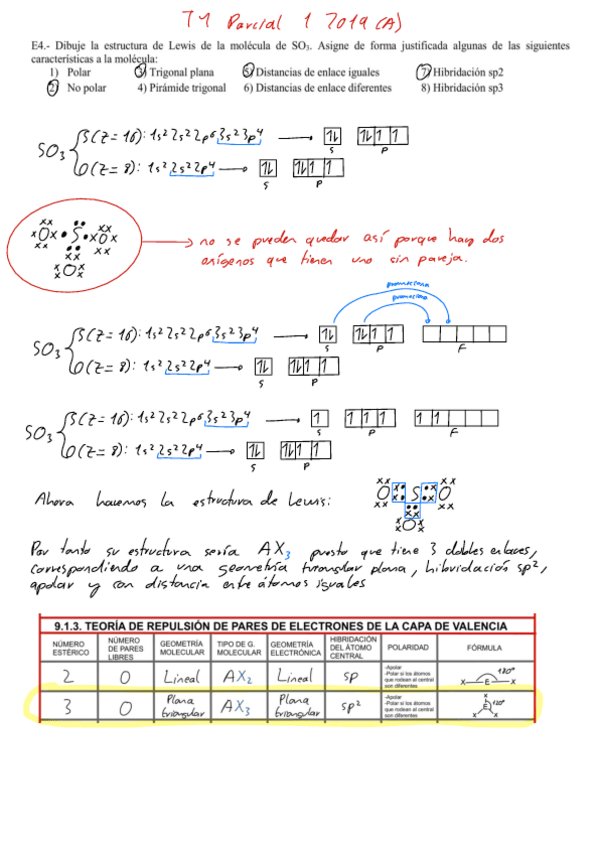 T4 Parcial 1 2019 (A)
E4.- Dibuje la estructura de Lewis de la molécula de SO₃. Asigne de forma justificada algunas de las siguientes
características a la molécula:
1) Polar 3) Trigonal plana 5) Distancias de enlace iguales 7) Hibridación sp2
2) No polar 4) Pirámide trigonal 6) Distancias de enlace diferentes 8) Hibridación sp3
S(Z=16): 1s² 2s² 2p⁶ 3s² 3p⁴
SO₃
O(Z=8): 1s² 2s² 2p⁴
S P
S P
S
O O
O
no se pueden quedar así porque hay dos
oxígenos que tienen uno sin pareja.
promociona
promociona
S(Z=16): 1s² 2s² 2p⁶ 3s² 3p⁴
S P F
SO₃
O(Z=8): 1s² 2s² 2p⁴
S P
S(Z=16): 1s² 2s² 2p⁶ 3s² 3p⁴
S P F
SO₃
O(Z=8): 1s² 2s² 2p⁴
S P
Ahora hacemos la estructura de Lewis:
O S O
O
Por tanto su estructura sería AX₃ puesto que tiene 3 dobles enlaces,
correspondiendo a una geometría triangular plana, hibridación sp²,
apolar y con distancia entre átomos iguales
9.1.3. TEORÍA DE REPULSIÓN DE PARES DE ELECTRONES DE LA CAPA DE VALENCIA
NÚMERO ESTÉRICO NÚMERO DE PARES LIBRES GEOMETRÍA MOLECULAR TIPO DE G. MOLECULAR GEOMETRÍA ELECTRÓNICA HIBRIDACIÓN DEL ÁTOMO CENTRAL POLARIDAD FÓRMULA
2 0 Lineal AX₂ Lineal sp -Apolar -Polar si los átomos que rodean al central son diferentes X—E—X 180°
3 0 Plana triangular AX₃ Plana triangular sp² -Apolar -Polar si los átomos que rodean al central son diferentes X E X X 120°